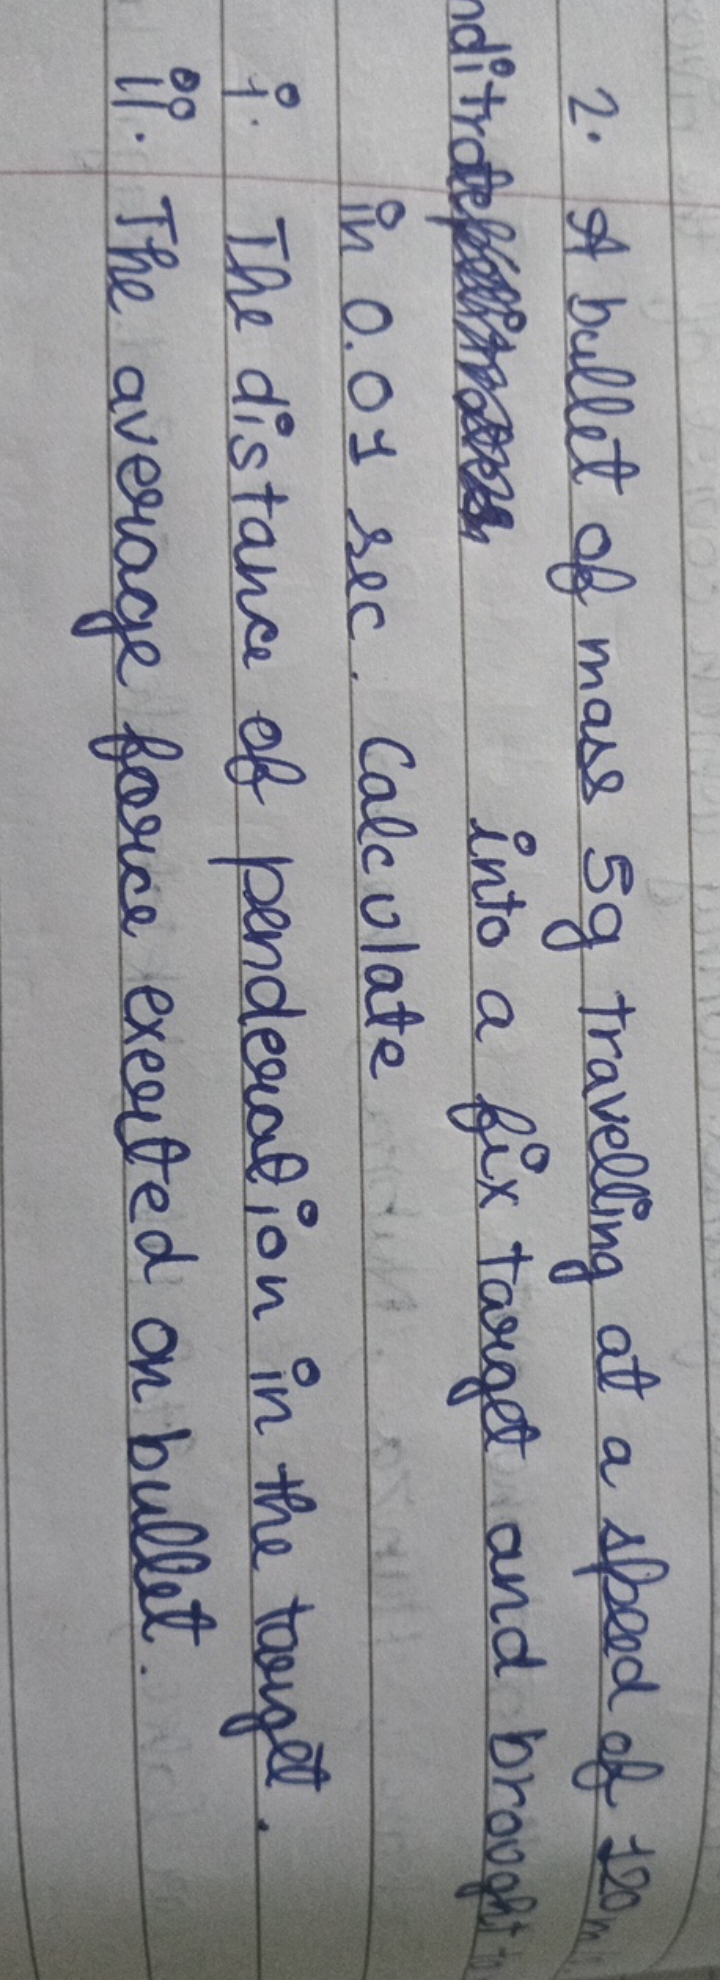 2. A bullet of mass 5g travelling at a speed of 120m
into a fix target and brought
in 0.01 sec. Calculate
i. The distance of penderation in the target.
ii. The average force exerted on bullet.